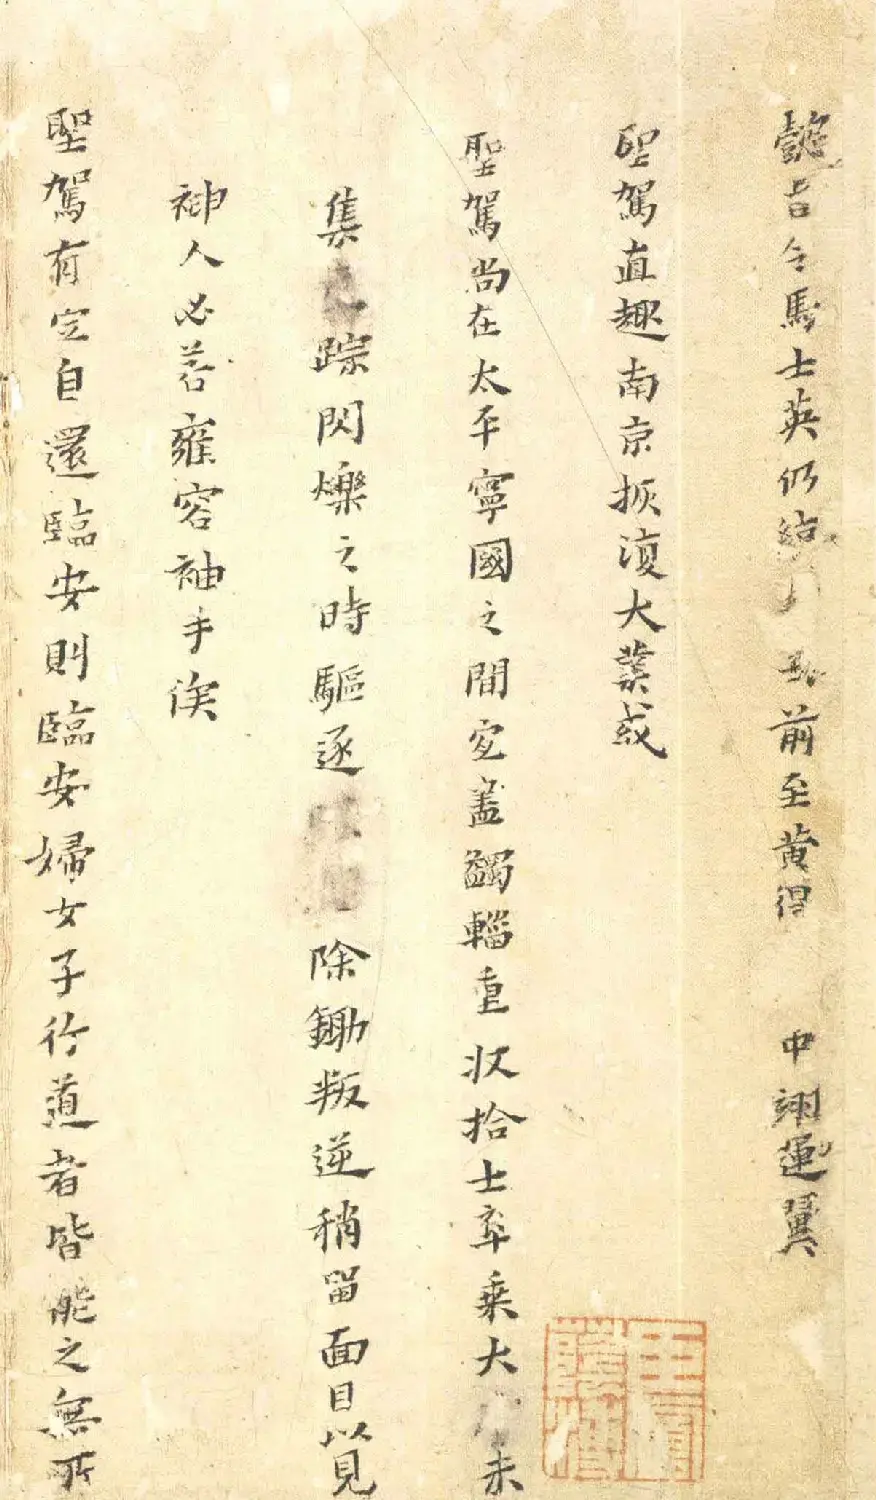 懿旨令馬士英仍 前至黃得 中翊運翼
聖駕直趣南京恢復大業或
聖駕尚在太平寧國之間定盡蠲輜重收拾士卒乘大 未
集 踪閃爍之時驅逐 除鋤叛逆稍留面目以見
神人必若雍容袖手俟
聖駕有定自還臨安則臨安婦女子行道者皆能之無所